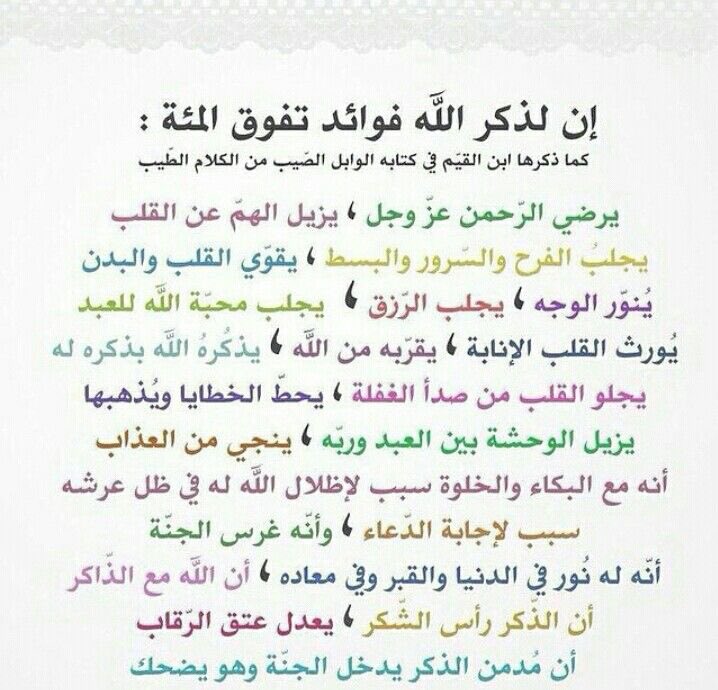 إن لذكر الله فوائد تفوق المئة :
كما ذكرها ابن القيّم في كتابه الوابل الصّيب من الكلام الطّيب
يرضي الرّحمن عزّ وجل ، يزيل الهمّ عن القلب
يجلبُ الفرح والسّرور والبسط ، يقوّي القلب والبدن
يُنوّر الوجه ، يجلب الرّزق ، يجلب محبّة الله للعبد
يُورث القلب الإنابة ، يقرّبه من الله ، يذكُرهُ الله بذكره له
يجلو القلب من صدأ الغفلة ، يحطّ الخطايا ويُذهبها
يزيل الوحشة بين العبد وربّه ، ينجي من العذاب
أنه مع البكاء والخلوة سبب لإظلال الله له في ظل عرشه
سبب لإجابة الدّعاء ، وأنّه غرس الجنّة
أنّه له نُور في الدنيا والقبر وفي معاده ، أن الله مع الذّاكر
أن الذّكر رأس الشّكر ، يعدل عتق الرّقاب
أن مُدمن الذكر يدخل الجنّة وهو يضحك